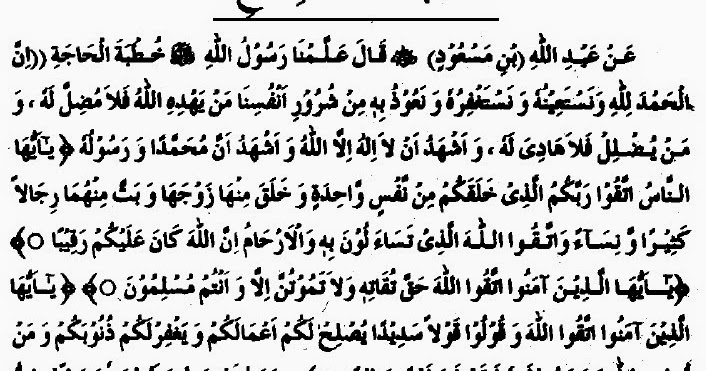 عَنْ عَبْدِ اللّٰهِ (بْنِ مَسْعُوْدٍ) ؓ قَالَ عَلَّمْنَا رَسُوْلُ اللّٰهِ ﷺ خُطْبَةَ الْحَاجَةِ ((اِنَّ
الْحَمْدَ لِلّٰهِ وَنَسْتَعِيْنُهٗ وَ نَسْتَغْفِرُهٗ وَ نَعُوْذُ بِهٖ مِنْ شُرُوْرِ اَنْفُسِنَا مَنْ يَهْدِهِ اللّٰهُ فَلاَ مُضِلَّ لَهٗ ، وَ
مَنْ يُضْلِلْ فَلاَ هَادِىَ لَهٗ ، وَ اَشْهَدُ اَنْ لاَ اِلٰهَ اِلَّا اللّٰهُ وَ اَشْهَدُ اَنَّ مُحَمَّدًا وَ رَسُوْلُهٗ ﴿ يٰۤاَيُّهَا
النَّاسُ اتَّقُوْا رَبَّكُمُ الَّذِىْ خَلَقَكُمْ مِنْ نَّفْسٍ وَّاحِدَةٍ وَ خَلَقَ مِنْهَا زَوْجَهَا وَ بَثَّ مِنْهُمَا رِجَالاً
كَثِيْرًا وَّ نِسَآءً وَاتَّقُوا اللّٰهَ الَّذِىْ تَسَاءَ لُوْنَ بِهٖ وَالْاَرْحَامُ اِنَّ اللّٰهَ كَانَ عَلَيْكُمْ رَقِيْبًا ○﴾
﴿يٰۤاَيُّهَا الَّذِيْنَ آمَنُوا اتَّقُوا اللّٰهَ حَقَّ تُقَاتِهٖ وَلاَ تَمُوْتُنَّ اِلَّا وَ اَنْتُمْ مُسْلِمُوْنَ ○﴾ ﴿ يٰۤاَيُّهَا
الَّذِيْنَ آمَنُوا اتَّقُوا اللّٰهَ وَ قُوْلُوْا قَوْلاً سَدِيْدًا يُصْلِحْ لَكُمْ اَعْمَالَكُمْ وَ يَغْفِرْلَكُمْ ذُنُوْبَكُمْ وَ مَنْ